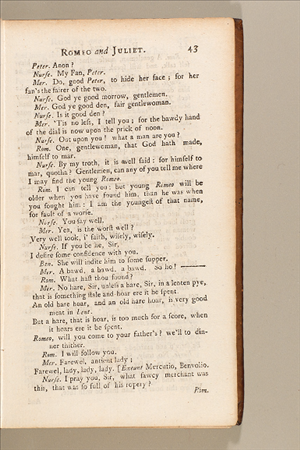 ROMEO and JULIET. 43
Peter. Anon?
Nurse. My Fan, Peter.
Mer. Do, good Peter, to hide her face; for her
fan's the fairer of the two.
Nurse. God ye good morrow, gentlemen.
Mer. God ye good den, fair gentlewoman.
Nurse. Is it good den?
Mer. 'Tis no less, I tell you; for the bawdy hand
of the dial is now upon the prick of noon.
Nurse. Out upon you! what a man are you?
Rom. One, gentlewoman, that God hath made,
himself to mar.
Nurse. By my troth, it is well said: for himself to
mar, quotha? Gentlemen, can any of you tell me where
I may find the young Romeo.
Rom. I can tell you: but young Romeo will be
older when you have found him, than he was when
you sought him: I am the youngest of that name,
for fault of a worse.
Nurse. You say well.
Mer. Yea, is the worst well?
Very well took, i' faith, wisely, wisely.
Nurse. If you be he, Sir,
I desire some confidence with you.
Ben. She will indite him to some supper.
Mer. A bawd, a bawd, a bawd. So ho!
Rom. What hast thou found?
Mer. No hare, Sir, unless a hare, Sir, in a lenten pye,
that is something stale and hoar ere it be spent.
An old hare hoar, and an old hare hoar, is very good
meat in Lent.
But a hare, that is hoar, is too much for a score, when
it hoars ere it be spent.
Romeo, will you come to your father's? we'll to din-
ner thither.
Rom. I will follow you.
Mer. Farewel, antient lady;
Farewel, lady, lady, lady. [Exeunt Mercutio, Benvolio.
Nurse. I pray you, Sir, what sawcy merchant was
this, that was so full of his ropery?
Rom.